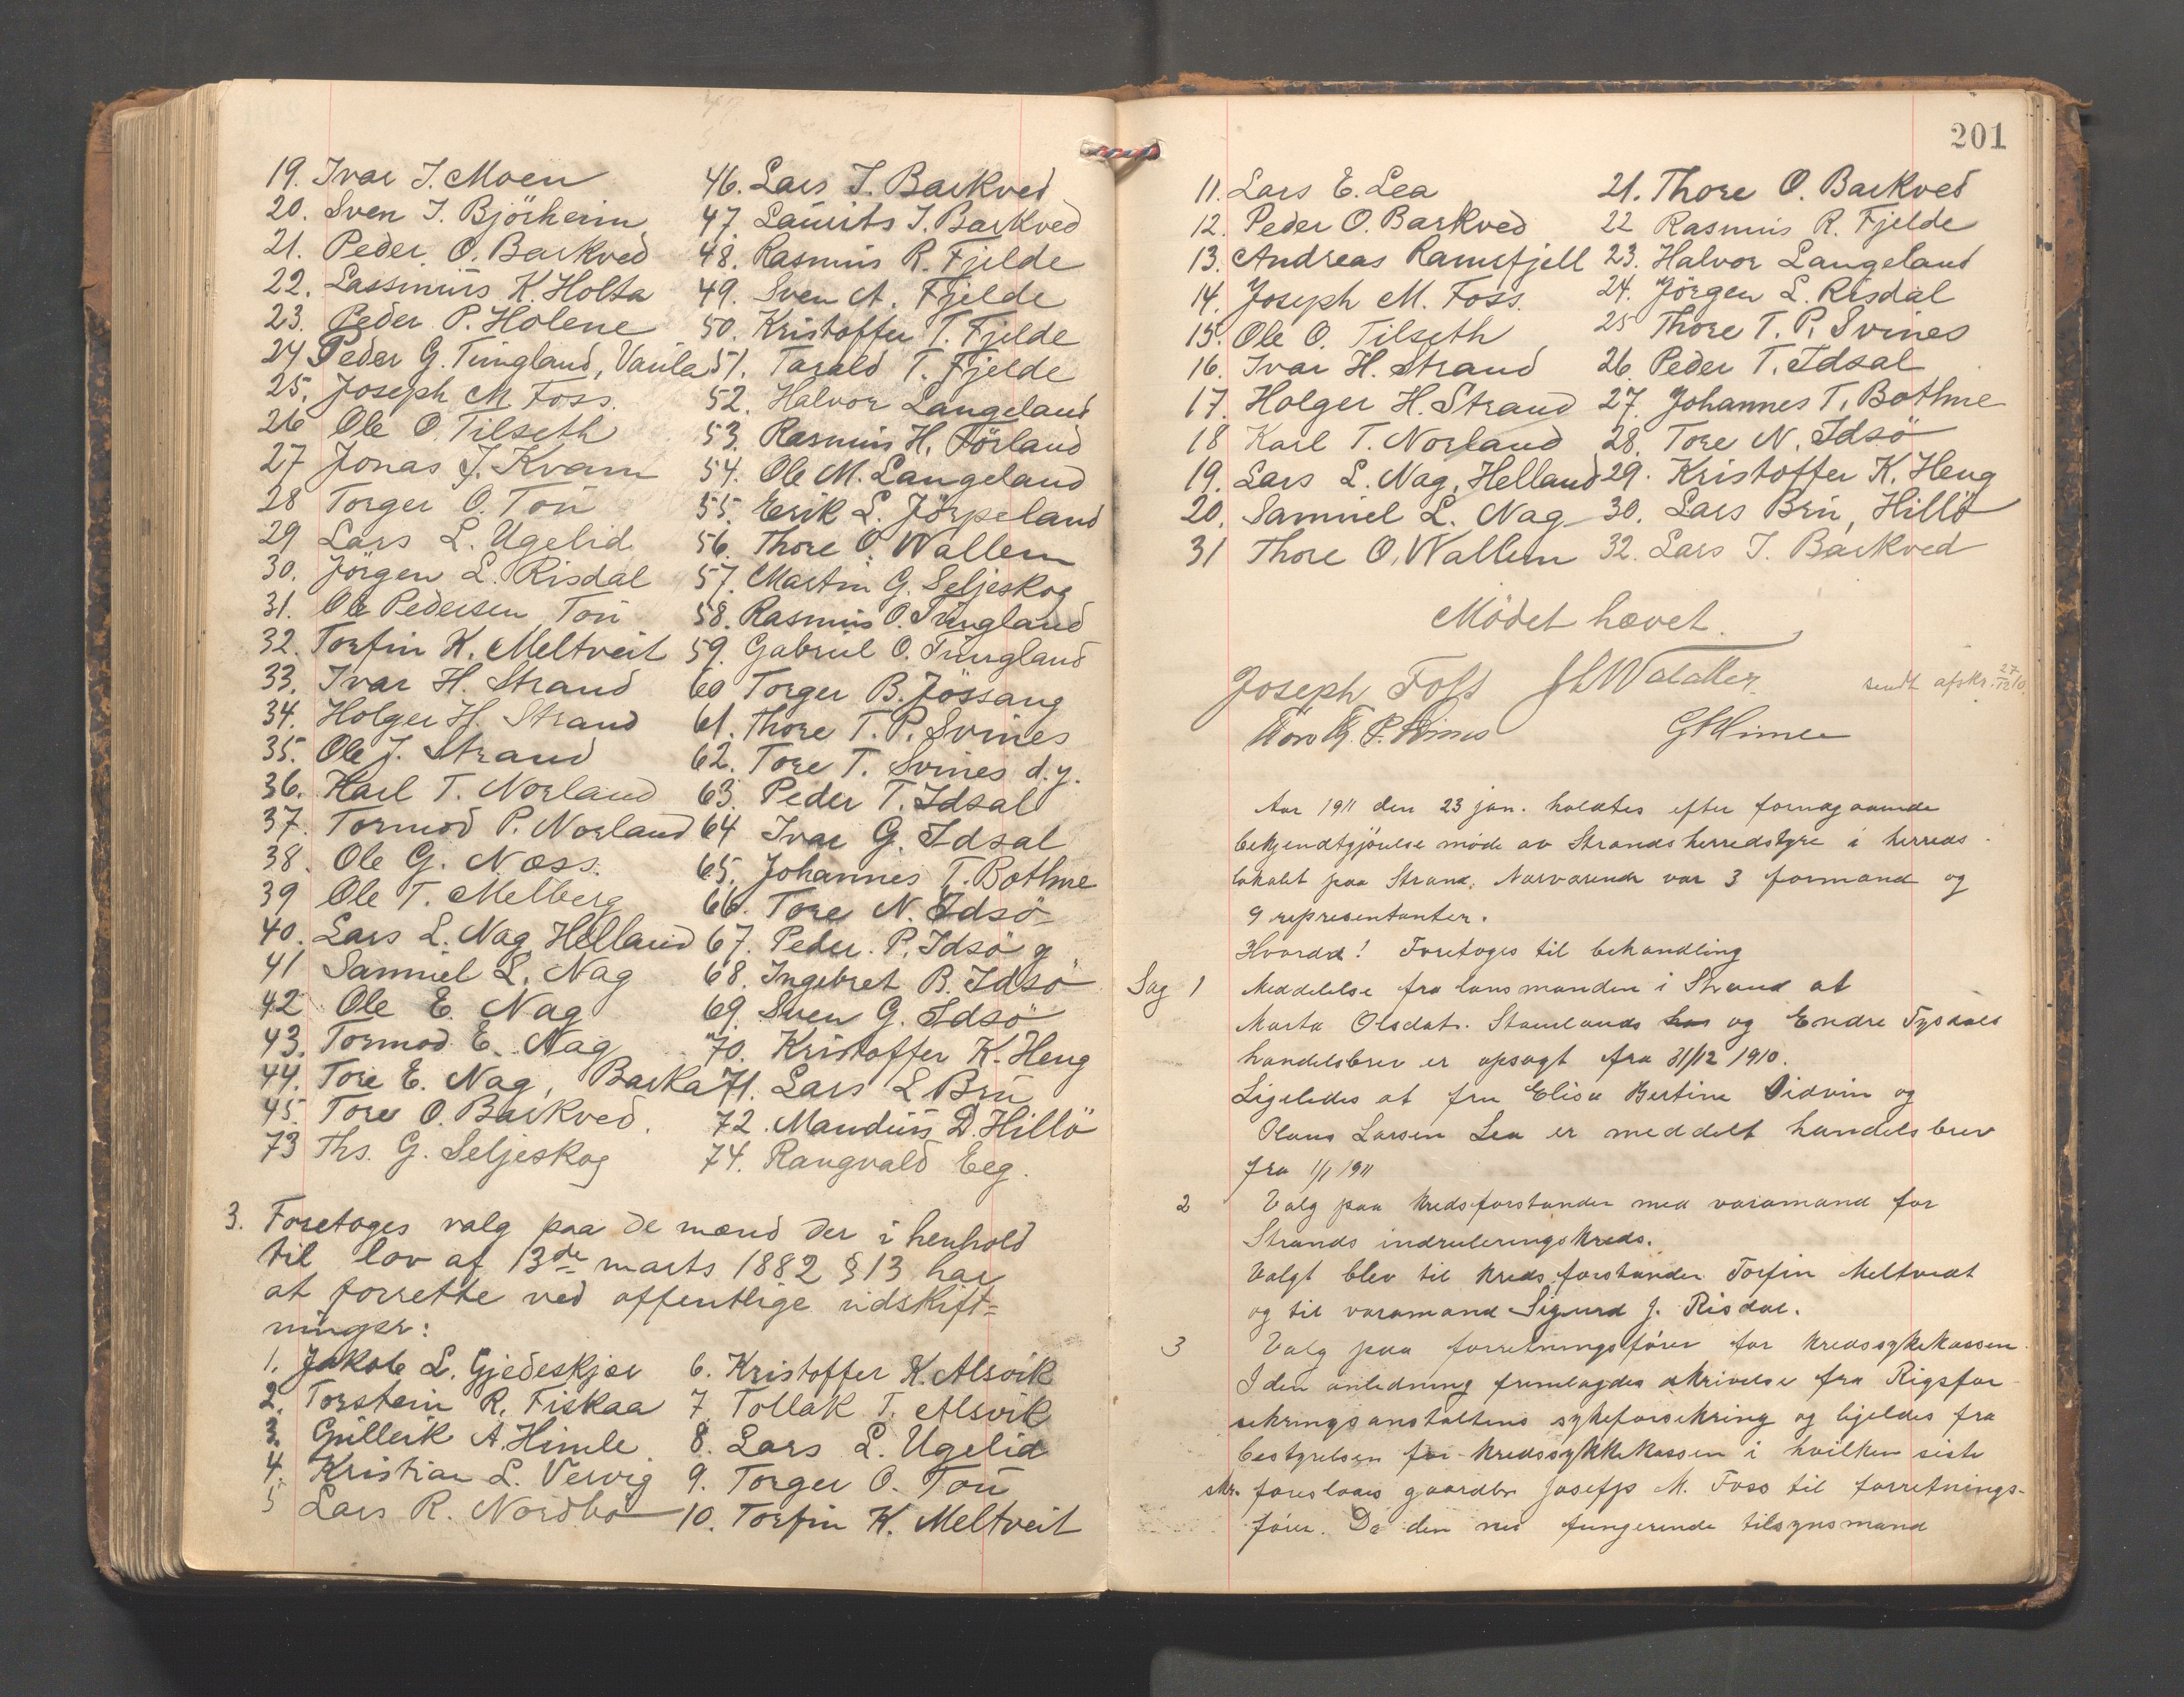 19. Ivar I. Moen
20. Sven I. Björheim
21. Peder O. Barkved
22. Lassmus K. Holta
23. Peder P. Holene
24 Peder G. Tungland, Vaula
25. Joseph M. Foss.
26 Ole O. Tilseth
27 Jonas J. Kvam
28 Torger O. Tou
29 Lars L. Ugelid
30. Jörgen L. Risdal
31. Ole Pedersen Tou
32. Torfin K. Meltveit
33. Ivar H. Strand
34. Holger H. Strand
35. Ole J. Strand
36. Karl T. Norland
37. Tormod P. Norland
38. Ole G. Næss.
39 Ole T. Melberg
40. Lars L. Nag Helland
41 Samuel L. Nag
42 Ole E. Nag
43. Tormod E. Nag
44. Tore E. Nag, Barka
45. Tore O. Barkved.
73 Ths. G. Seljeskog
46. Lars I. Barkved
47. Laurits I. Barkved
48. Rasmus R. Fjelde
49. Sven A. Fjelde
50. Kristoffer T. Fjelde
51. Tarald T. Fjelde
52. Halvor Langeland
53. Rasmus H. Förland
54. Ole M. Langeland
55. Erik L. Jörpeland
56. Thore O. Wallem
57. Martin G. Seljeskog
58. Rasmus O. Tungland
59. Gabriel O. Tungland
60 Torger B. Jössang
61. Thore T. P. Svines
62. Tore T. Svines d.y.
63. Peder T. Idsal
64 Ivar G. Idsal
65. Johannes T. Bothne
66. Tore N. Idsö
67. Peder P. Idsö y
68. Ingebret B. Idsö
69. Sven G. Idsö
70. Kristoffer K. Heng
71. Lars L Bru
72. Mandius D. Hillö
74. Rangvald Eeg.
3. Foretoges valg paa de mænd der i henhold
til lov af 13de marts 1882 § 13 har
at forrette ved offentlige udskift=
ninger:
1. Jakob L. Gjedeskjær
2. Torstein R. Fiskaa
3. Gulleik A. Himle
4. Kristian L. Vervig
5 Lars R. Nordbö
6. Kristoffer K. Alsvik
7. Tollak T. Alsvik
8. Lars L. Ugelid
9. Torger O. Tou
10. Torfin K. Meltveit
201
11. Lars E. Lea
12. Peder O. Barkved
13. Andreas Ramsfjell
14. Joseph M. Foss.
15. Ole O. Tilseth
16. Ivar H. Strand
17. Holger H. Strand
18 Karl T. Norland
19. Lars L. Nag, Helland
20. Samuel L. Nag
31 Thore O. Wallem
21. Thore O. Barkved
22 Rasmus R. Fjelde
23. Halvor Langeland
24. Jörgen L. Risdal
25 Thore T. P. Svines
26 Peder T. Idsal
27. Johannes T. Bothne
28. Tore N. Idsö
29. Kristoffer K. Heng
30. Lars Bru, Hillö
32. Lars I. Barkved
Mödet hævet.
Joseph Foss
sendt afskr. 27/12 10.
Aar 1911 den 23 jan. holdtes efter forudgaaende
bekjendtgjörelse möde av Strands herredstyre i herreds-
lokalet paa Strand. Nærværende var 3 formænd og
9 representanter.
Hvorda! Foretoges til behandling
Sag 1 Meddelelse fra lensmanden i Strand at
Marta Olsdat. Stamlands og Endre Tysdals
handelsbrev er opsagt fra 31/12 1910.
Ligeledes at fru Elisa Bertine Vidvin og
Olaus Larsen Lea er meddelt handelsbrev
fra 1/1 1911
2 Valg paa kredsforstander med varamand for
Strands indruleringskreds.
Valgt blev til kredsforstander Torfin Meltveit
og til varamand Sigurd J. Risdal.
3 Valg paa forretningsförer for kredssykekassen.
I den anledning fremlagdes skrivelse fra Rigsfor-
sikringsanstaltens sykeforsikring og ligeledes fra
bestyrelsen for kredssykkekassen i hvilken siste
skr. foreslaaes gaardbr Josefs M. Foss til forretnings-
förer. Da den nu fungerende tilsynsmand